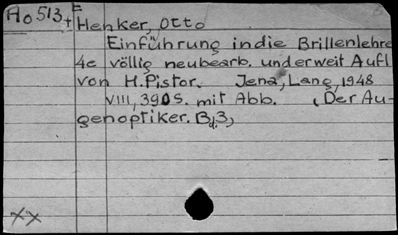 Ho 513,+E
Henker, Otto
Einführung in die Brillenlehre
4e völlig neubearb. und erweit Aufl
von H. Pistor. Jena, Lang, 1948
VIII, 390 S. mit Abb. (Der Au-
genoptiker. Bd. 3,)
xx